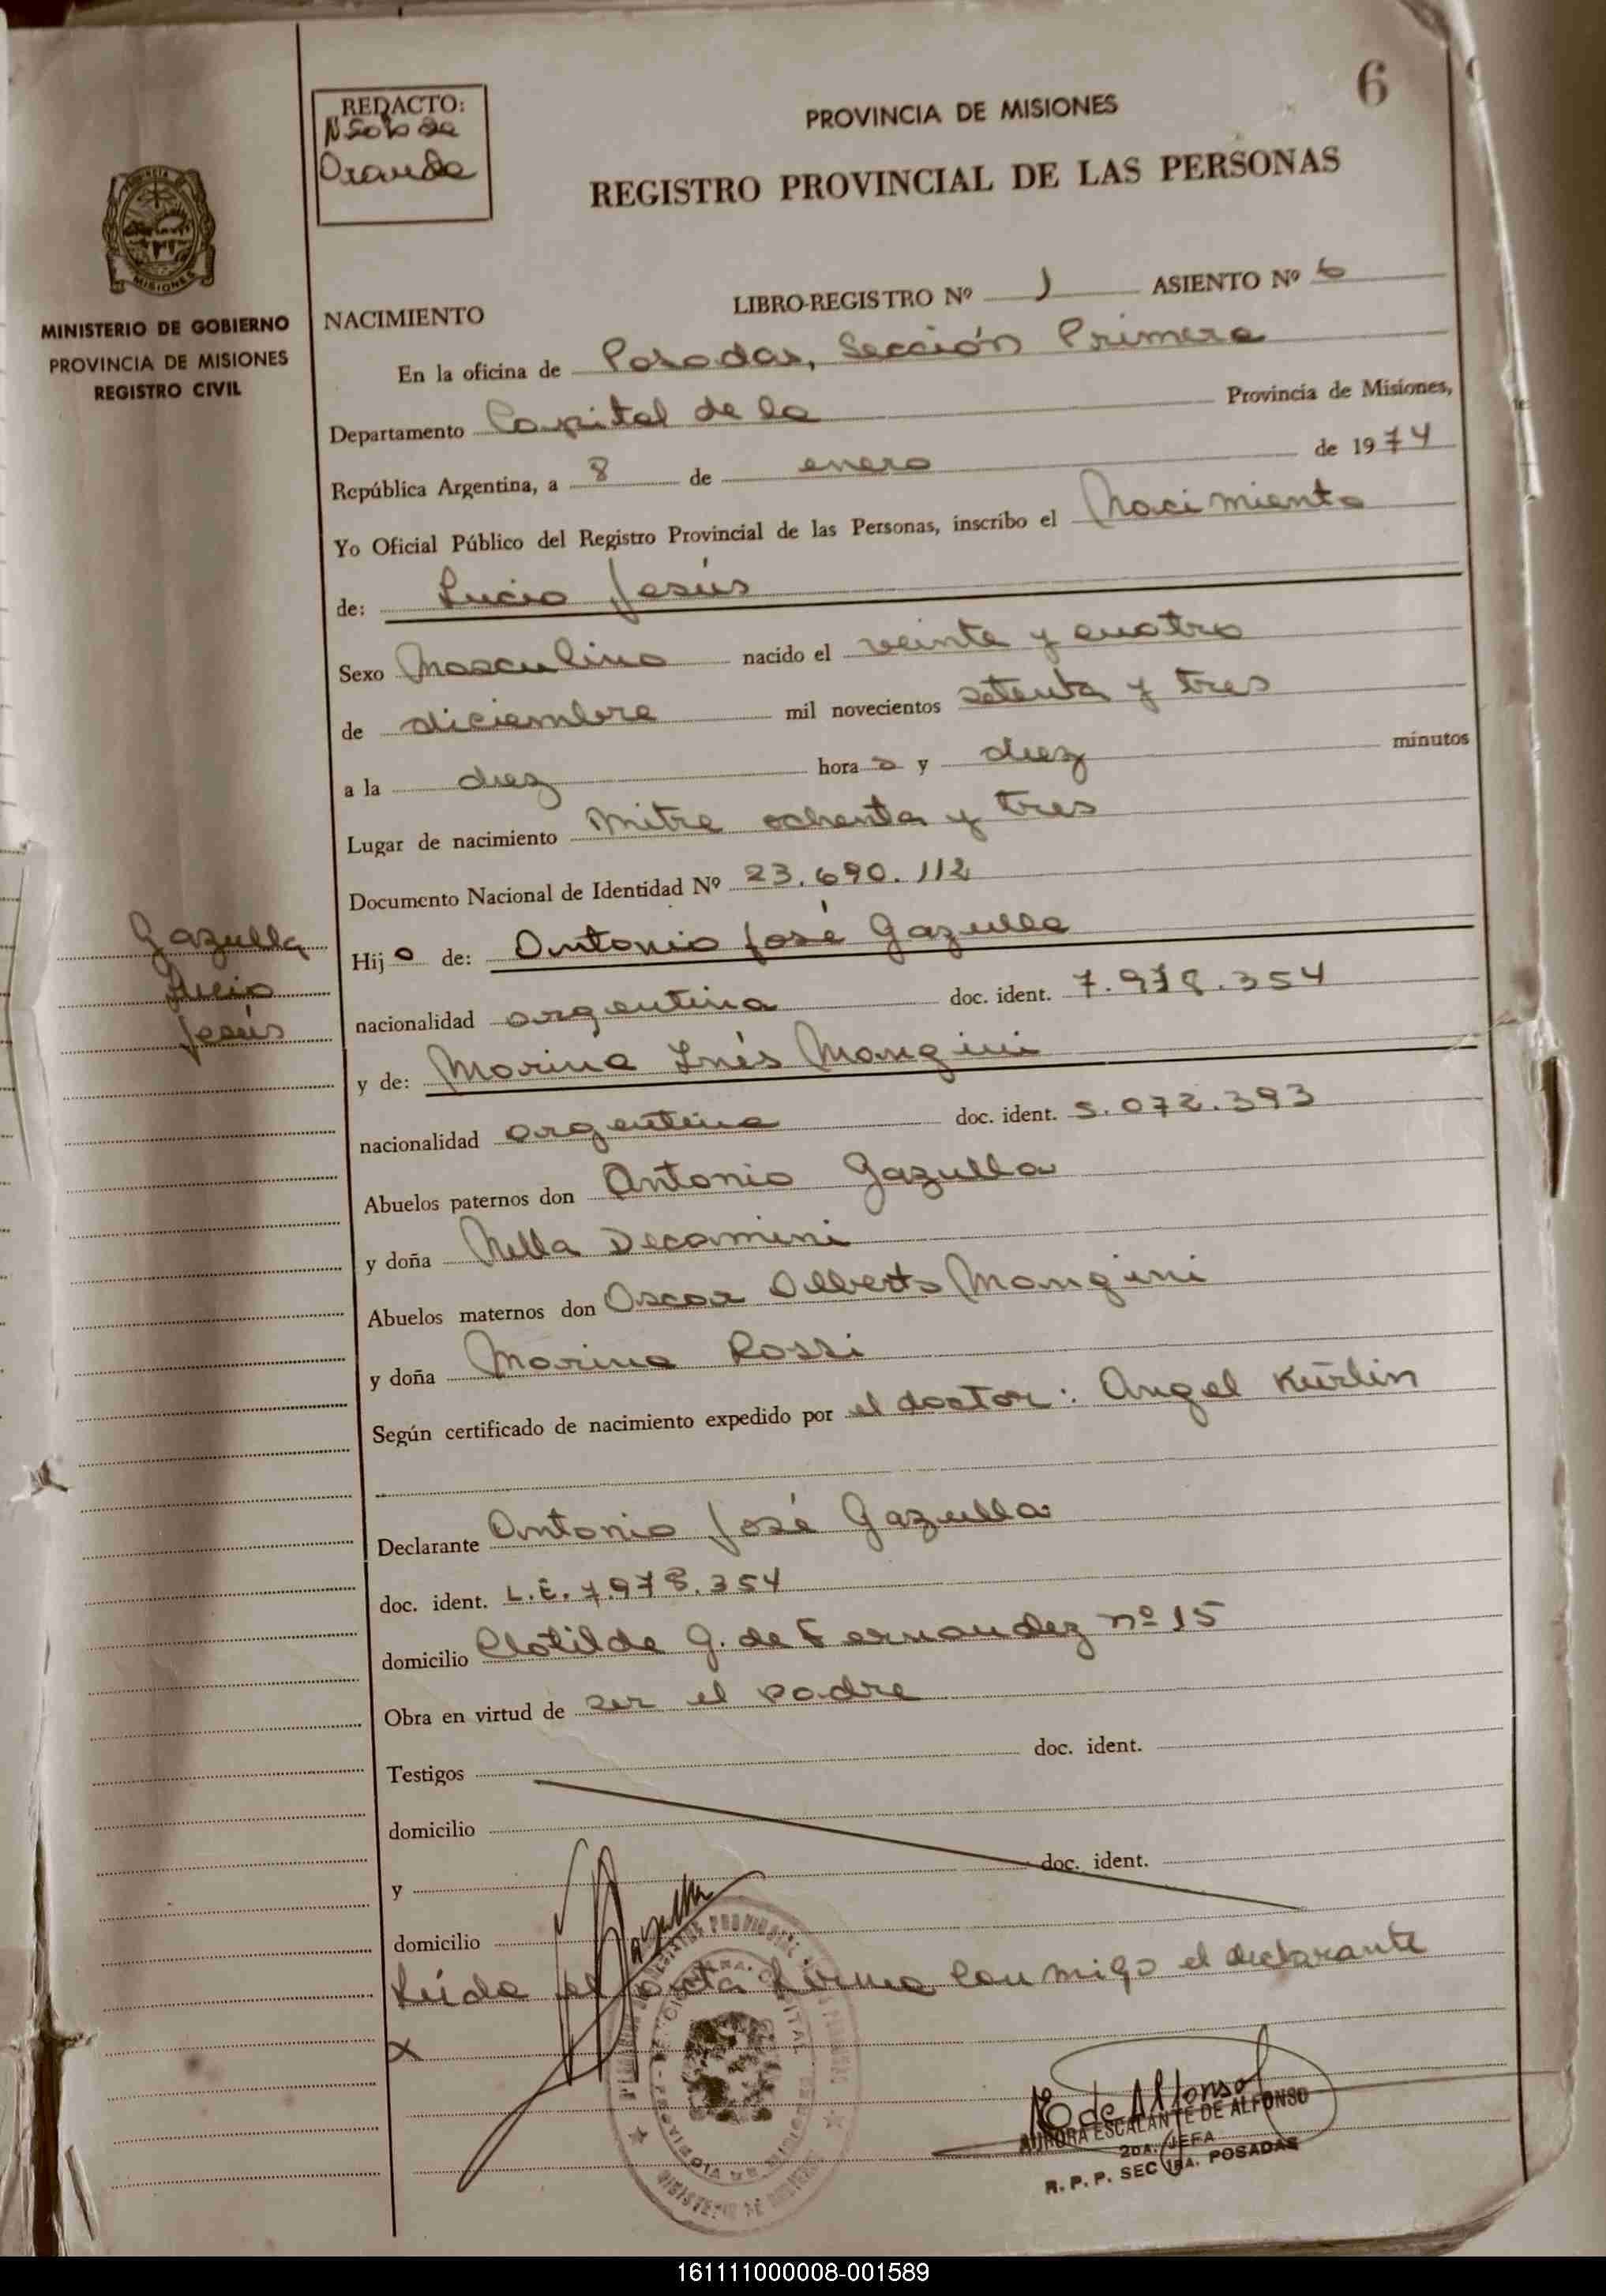 6
REDACTO:
N Soto de
PROVINCIA DE MISIONES
REGISTRO PROVINCIAL DE LAS PERSONAS
MISIONES
MINISTERIO DE GOBIERNO
PROVINCIA DE MISIONES
REGISTRO CIVIL
NACIMIENTO LIBRO-REGISTRO Nº 1 ASIENTO Nº 6
En la oficina de Posadas, Sección Primera
Departamento Capital de la Provincia de Misiones,
República Argentina, a 8 de enero de 1974
Yo Oficial Público del Registro Provincial de las Personas, inscribo el Nacimiento
de: Lucio Jesús
Sexo Masculino nacido el veinte y cuatro
de diciembre mil novecientos setenta y tres
a la diez hora s y diez minutos
Lugar de nacimiento Mitre ochenta y tres
Documento Nacional de Identidad Nº 23.690.112
Gazulla
Lucio
Jesús
Hij o de: Antonio José Gazulla
nacionalidad argentina doc. ident. 7.978.354
y de: Marina Inés Mangini
nacionalidad argentina doc. ident. 5.072.393
Abuelos paternos don Antonio Gazulla
y doña Nella Decamini
Abuelos maternos don Oscar Alberto Mangini
y doña Marina Rossi
Según certificado de nacimiento expedido por el doctor: Angel Kürlin
Declarante Antonio José Gazulla
doc. ident. L.E. 7.978.354
domicilio Clotilde G. de Fernandez nº 15
Obra en virtud de ser el padre
Testigos doc. ident.
domicilio
y doc. ident.
domicilio
Leida el acta firma conmigo el declarante
x
Gazulla
AE de Alfonso
AURORA ESCALANTE DE ALFONSO
2DA. JEFA
R. P. P. SEC 1RA. POSADAS
161111000008-001589